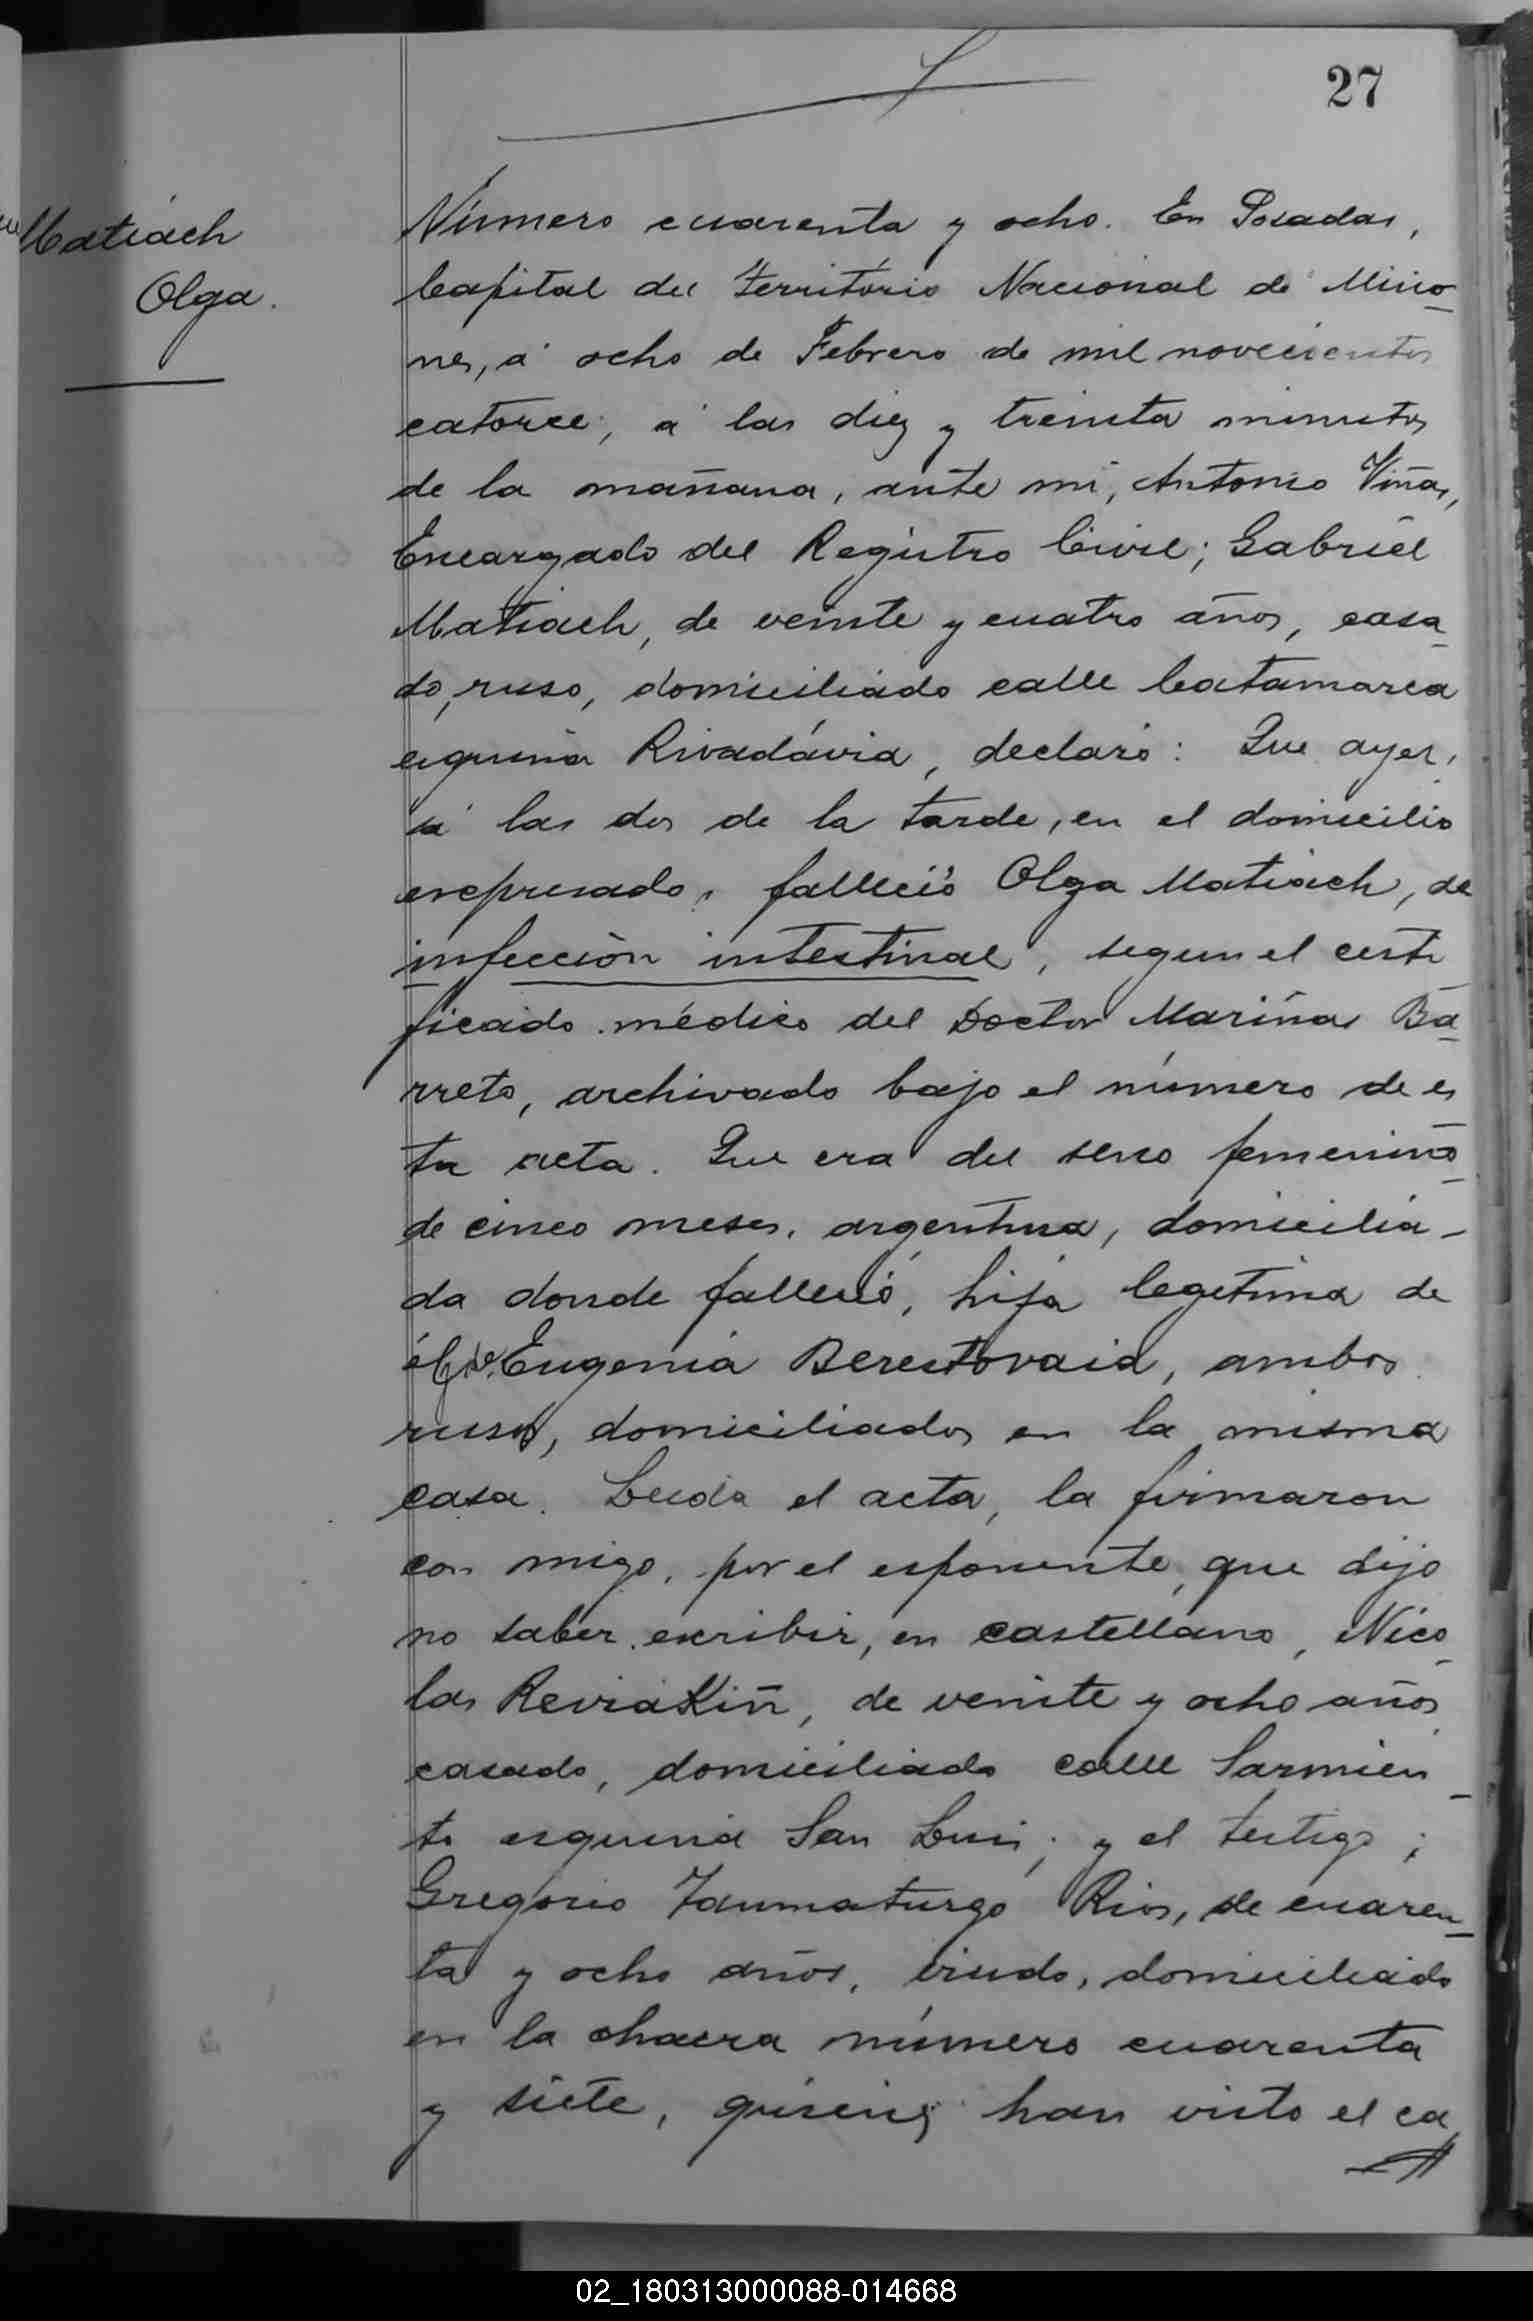 27
Matiach
Olga.
Número cuarenta y ocho. En Posadas,
Capital del Territorio Nacional de Misio
nes, á ocho de Febrero de mil novecientos
catorce, á las diez y treinta minutos
de la mañana, ante mi, Antonio Viñas,
Encargado del Registro Civil; Gabriel
Matiach, de veinte y cuatro años, casa
do, ruso, domiciliado calle Catamarca
esquina Rivadávia, declaró: Que ayer,
á las dos de la tarde, en el domicilio
expresado, falleció Olga Matiach, de
infección intestinal, segun el certi
ficado médico del Doctor Mariñas Ba
rreto, archivado bajo el número de es
ta acta. Que era del sexo femenino
de cinco meses, argentina, domicilia-
da donde falleció, hija legitima de
él y de Eugenia Berestovaia, ambos
rusos, domiciliados en la misma
casa. Leida el acta, la firmaron
con migo, por el esponente, que dijo
no saber escribir, en castellano, Nico
las Reviakin, de veinte y ocho años
casado, domiciliado calle Sarmien
to esquina San Luis; y el testigo;
Gregorio Taumaturgo Rios, de cuaren
ta y ocho años, viudo, domiciliado
en la chacra número cuarenta
y siete, quienes han visto el ca
02_180313000088-014668